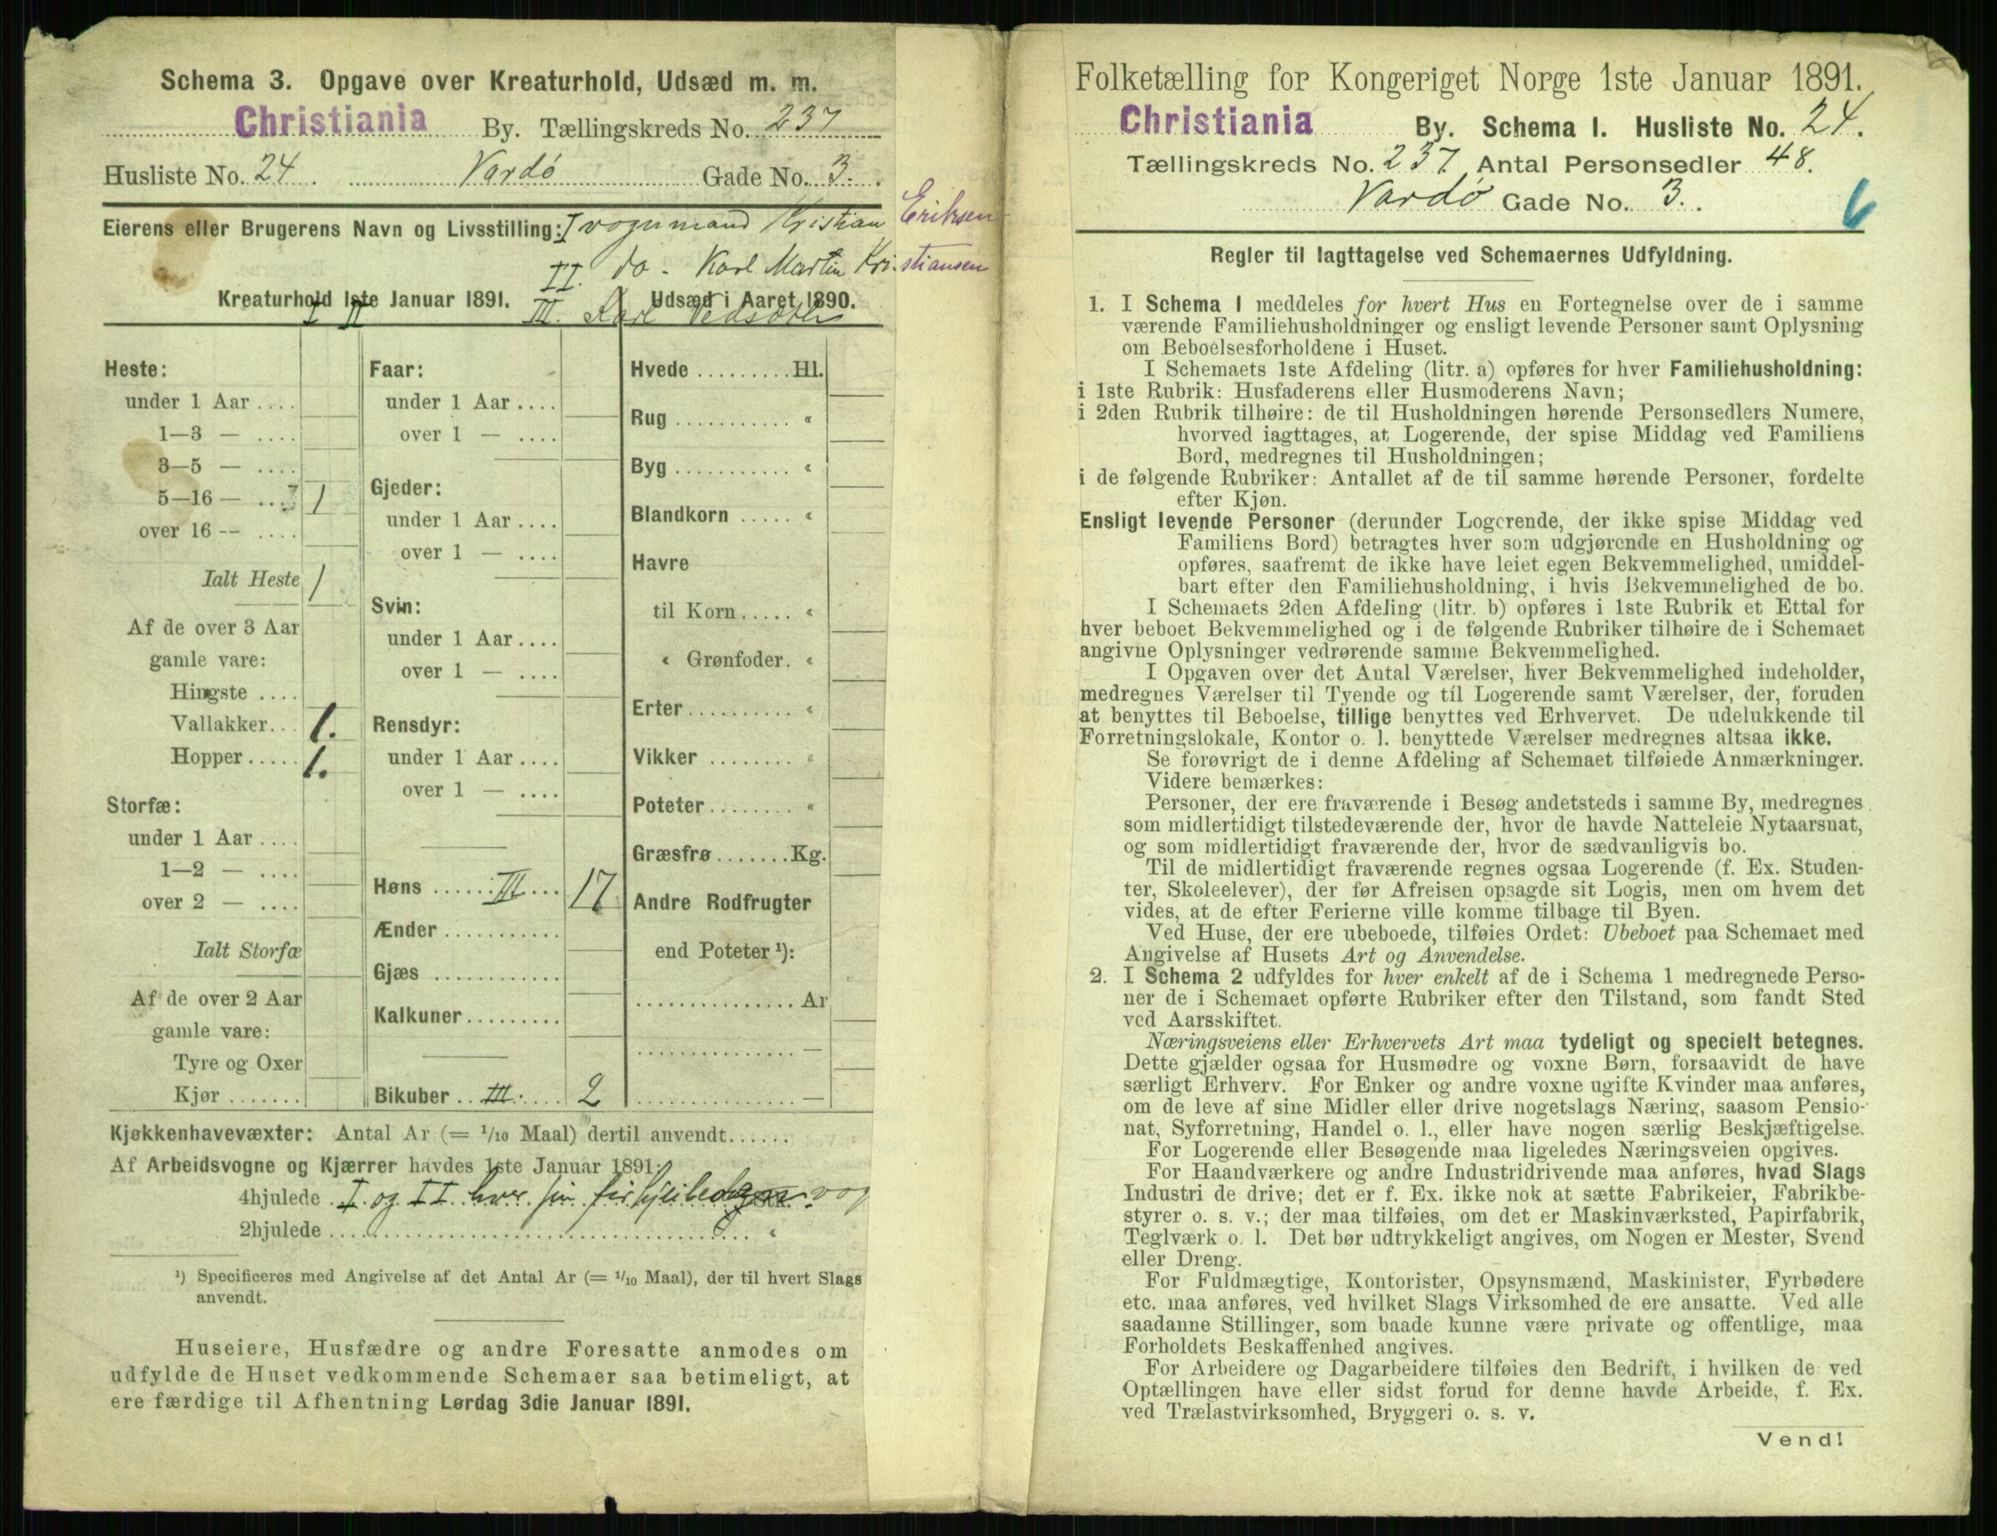 Schema 3. Opgave over Kreaturhold, Udsæd m. m.
Christiania By. Tællingskreds No. 237
Husliste No. 24. Vardø Gade No. 3.
Eierens eller Brugerens Navn og Livsstilling: I vognmand Kristian Eriksen
II. do. Karl Martin Kristiansen
Kreaturhold 1ste Januar 1891. III. Karl Udsæd i Aaret 1890.
I II
Heste:
under 1 Aar ....
1—3 — ....
3—5 — ....
5—16 — .... 1
over 16 — ....
Ialt Heste 1
Af de over 3 Aar
gamle vare:
Hingste ....
Vallakker.. 1.
Hopper..... 1.
Storfæ:
under 1 Aar....
1—2 — ....
over 2 — ....
Ialt Storfæ
Af de over 2 Aar
gamle vare:
Tyre og Oxer
Kjør.......
Faar:
under 1 Aar....
over 1 — ....
Gjeder:
under 1 Aar....
over 1 — ....
Svin:
under 1 Aar....
over 1 — ....
Rensdyr:
under 1 Aar....
over 1 — ....
Høns ...... III ... 17
Ænder ...........
Gjæs ............
Kalkuner.........
Bikuber .. III. .... 2
Hvede .........Hl.
Rug ........... «
Byg ........... «
Blandkorn ..... «
Havre
til Korn..... «
« Grønfoder. «
Erter.......... «
Vikker ........ «
Poteter........ «
Græsfrø.......Kg.
Andre Rodfrugter
end Poteter ¹):
............... Ar
............... —
............... —
Kjøkkenhavevæxter: Antal Ar (= 1/10 Maal) dertil anvendt......
Af Arbeidsvogne og Kjærrer havdes 1ste Januar 1891:
4hjulede . I og II hver sin Stk.
2hjulede ............ «
¹) Specificeres med Angivelse af det Antal Ar (= 1/10 Maal), der til hvert Slags
anvendt.
Huseiere, Husfædre og andre Foresatte anmodes om
udfylde de Huset vedkommende Schemaer saa betimeligt, at
ere færdige til Afhentning Lørdag 3die Januar 1891.
Folketælling for Kongeriget Norge 1ste Januar 1891.
Christiania By. Schema 1. Husliste No. 24.
Tællingskreds No. 237. Antal Personsedler 48.
Vardø Gade No. 3. 6
Regler til Iagttagelse ved Schemaernes Udfyldning.
1. I Schema 1 meddeles for hvert Hus en Fortegnelse over de i samme
værende Familiehusholdninger og ensligt levende Personer samt Oplysning
om Beboelsesforholdene i Huset.
I Schemaets 1ste Afdeling (litr. a) opføres for hver Familiehusholdning:
i 1ste Rubrik: Husfaderens eller Husmoderens Navn;
i 2den Rubrik tilhøire: de til Husholdningen hørende Personsedlers Numere,
hvorved iagttages, at Logerende, der spise Middag ved Familiens
Bord, medregnes til Husholdningen;
i de følgende Rubriker: Antallet af de til samme hørende Personer, fordelte
efter Kjøn.
Ensligt levende Personer (derunder Logerende, der ikke spise Middag ved
Familiens Bord) betragtes hver som udgjørende en Husholdning og
opføres, saafremt de ikke have leiet egen Bekvemmelighed, umiddel-
bart efter den Familiehusholdning, i hvis Bekvemmelighed de bo.
I Schemaets 2den Afdeling (litr. b) opføres i 1ste Rubrik et Ettal for
hver beboet Bekvemmelighed og i de følgende Rubriker tilhøire de i Schemaet
angivne Oplysninger vedrørende samme Bekvemmelighed.
I Opgaven over det Antal Værelser, hver Bekvemmelighed indeholder,
medregnes Værelser til Tyende og til Logerende samt Værelser, der, foruden
at benyttes til Beboelse, tillige benyttes ved Erhvervet. De udelukkende til
Forretningslokale, Kontor o. l. benyttede Værelser medregnes altsaa ikke.
Se forøvrigt de i denne Afdeling af Schemaet tilføiede Anmærkninger.
Videre bemærkes:
Personer, der ere fraværende i Besøg andetsteds i samme By, medregnes
som midlertidigt tilstedeværende der, hvor de havde Natteleie Nytaarsnat,
og som midlertidigt fraværende der, hvor de sædvanligvis bo.
Til de midlertidigt fraværende regnes ogsaa Logerende (f. Ex. Studen-
ter, Skoleelever), der før Afreisen opsagde sit Logis, men om hvem det
vides, at de efter Ferierne ville komme tilbage til Byen.
Ved Huse, der ere ubeboede, tilføies Ordet: Ubeboet paa Schemaet med
Angivelse af Husets Art og Anvendelse.
2. I Schema 2 udfyldes for hver enkelt af de i Schema 1 medregnede Perso-
ner de i Schemaet opførte Rubriker efter den Tilstand, som fandt Sted
ved Aarsskiftet.
Næringsveiens eller Erhvervets Art maa tydeligt og specielt betegnes.
Dette gjælder ogsaa for Husmødre og voxne Børn, forsaavidt de have
særligt Erhverv. For Enker og andre voxne ugifte Kvinder maa anføres,
om de leve af sine Midler eller drive nogetslags Næring, saasom Pensio-
nat, Syforretning, Handel o. l., eller have nogen særlig Beskjæftigelse.
For Logerende eller Besøgende maa ligeledes Næringsveien opgives.
For Haandværkere og andre Industridrivende maa anføres, hvad Slags
Industri de drive; det er f. Ex. ikke nok at sætte Fabrikeier, Fabrikbe-
styrer o. s. v.; der maa tilføies, om det er Maskinværksted, Papirfabrik,
Teglværk o. l. Det bør udtrykkeligt angives, om Nogen er Mester, Svend
eller Dreng.
For Fuldmægtige, Kontorister, Opsynsmænd, Maskinister, Fyrbødere
etc. maa anføres, ved hvilket Slags Virksomhed de ere ansatte. Ved alle
saadanne Stillinger, som baade kunne være private og offentlige, maa
Forholdets Beskaffenhed angives.
For Arbeidere og Dagarbeidere tilføies den Bedrift, i hvilken de ved
Optællingen have eller sidst forud for denne havde Arbeide, f. Ex.
ved Trælastvirksomhed, Bryggeri o. s. v.
Vend!